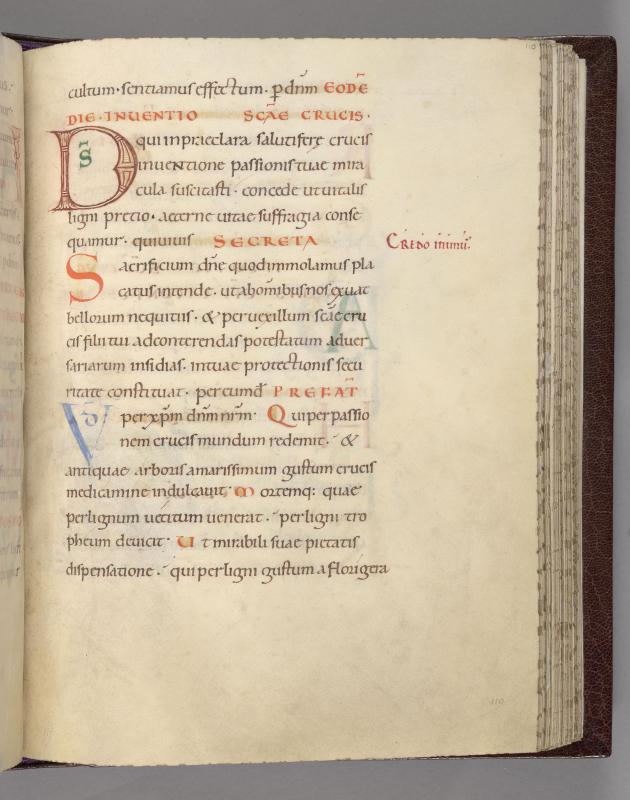 cultum· sentiamus effectum. p̱ dnm̄ EODĒ
DIE· INUENTIO SCĀE CRUCIS·
DS̄ qui inpraeclara salutiferę crucis
inuentione passionis tuae mira
cula suscitasti· concede ut uitalis
ligni pretio· aeterne uitae suffragia conse
quamur· qui uiuis SECRETA
CREDO IN UNU̅.
Sacrificium dn̄e quod immolamus pla
catus intende· ut ab omnibus nos exuat
bellorum nequitiis· & per uexillum scāe cru
cis filii tui ad conterendas potestatum aduer
sariarum insidias· in tuae protectionis secu
ritate constituat· per eund̄ PREFAT̄
VD per xp̄m dn̄m nr̄m· Qui per passio
nem crucis mundum redemit· &
antiquae arboris amarissimum gustum crucis
medicamine indulcauit· Mortemq: quae
per lignum uetitum uenerat· per ligni tro
pheum deuicit· Ut mirabili suae pietatis
dispensatione· qui per ligni gustum a florigera
110
110